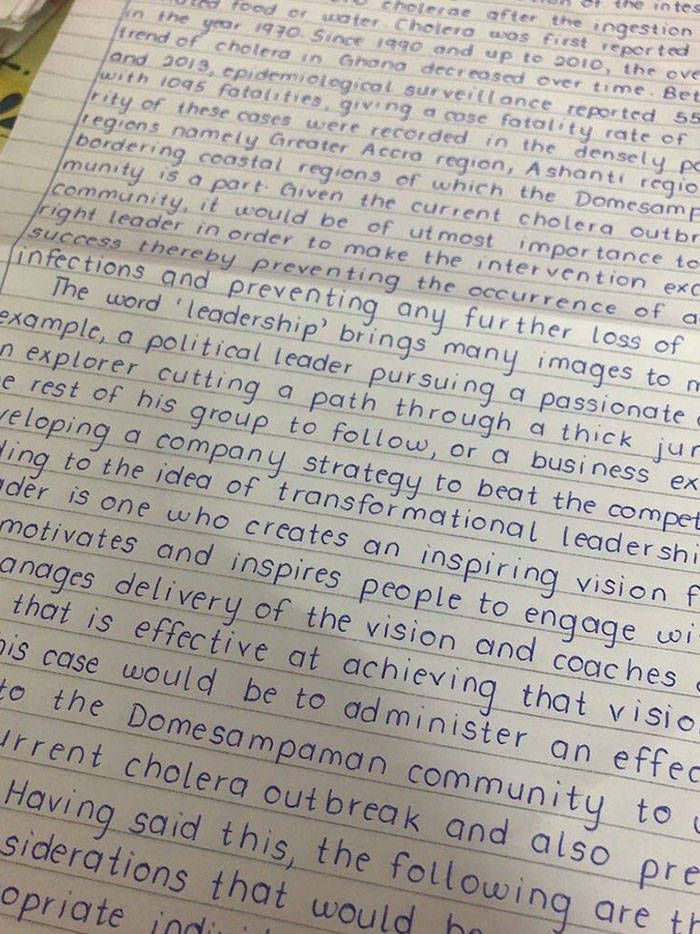 food or water. Cholera was first reported
cholerae after the ingestion
in the year 1970. Since 1990 and up to 2010, the ove
trend of cholera in Ghana decreased over time. Bet
and 2013, epidemiological surveillance reported 55
with 1095 fatalities, giving a case fatality rate of
rity of these cases were recorded in the densely po
regions namely Greater Accra region, Ashanti regio
bordering coastal regions of which the Domesamp
munity is a part. Given the current cholera outbr
community, it would be of utmost importance to
right leader in order to make the intervention exc
success thereby preventing the occurrence of a
infections and preventing any further loss of
The word 'leadership' brings many images to m
example, a political leader pursuing a passionate
n explorer cutting a path through a thick jun
e rest of his group to follow, or a business ex
veloping a company strategy to beat the compet
ding to the idea of transformational leadershi
der is one who creates an inspiring vision f
motivates and inspires people to engage wi
anages delivery of the vision and coaches
that is effective at achieving that visio
his case would be to administer an effec
to the Domesampaman community to
urrent cholera outbreak and also pre
Having said this, the following are th
siderations that would be
opriate